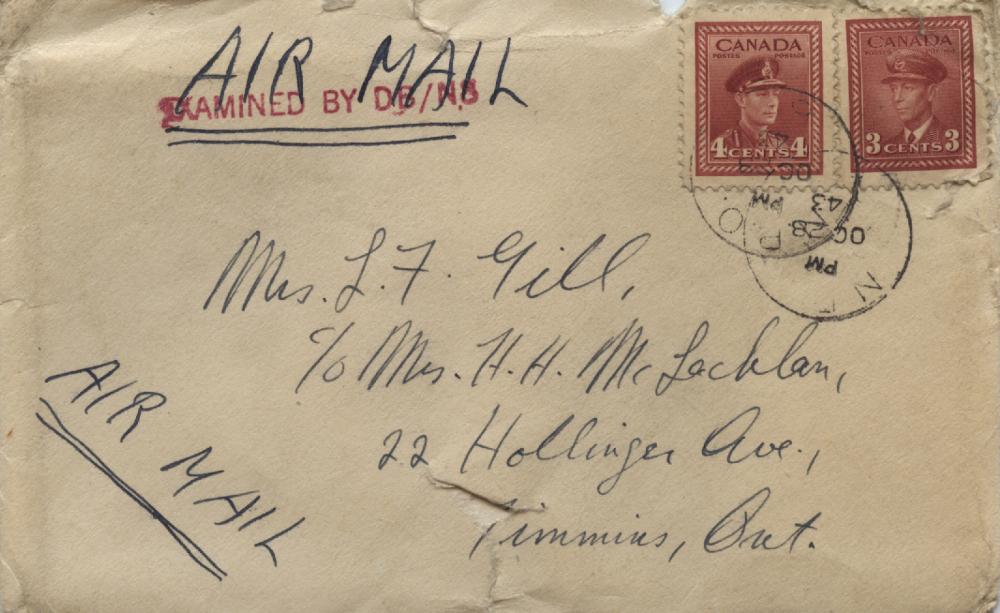 AIR MAIL
EXAMINED BY DB/NS
CANADA
POSTES POSTAGE
4 CENTS 4
CANADA
3 CENTS 3
PM
OC 28
43
Mrs. L. F. Gill,
c/o Mrs. H. H. McLachlan,
22 Hollinger Ave.,
Timmins, Ont.
AIR MAIL